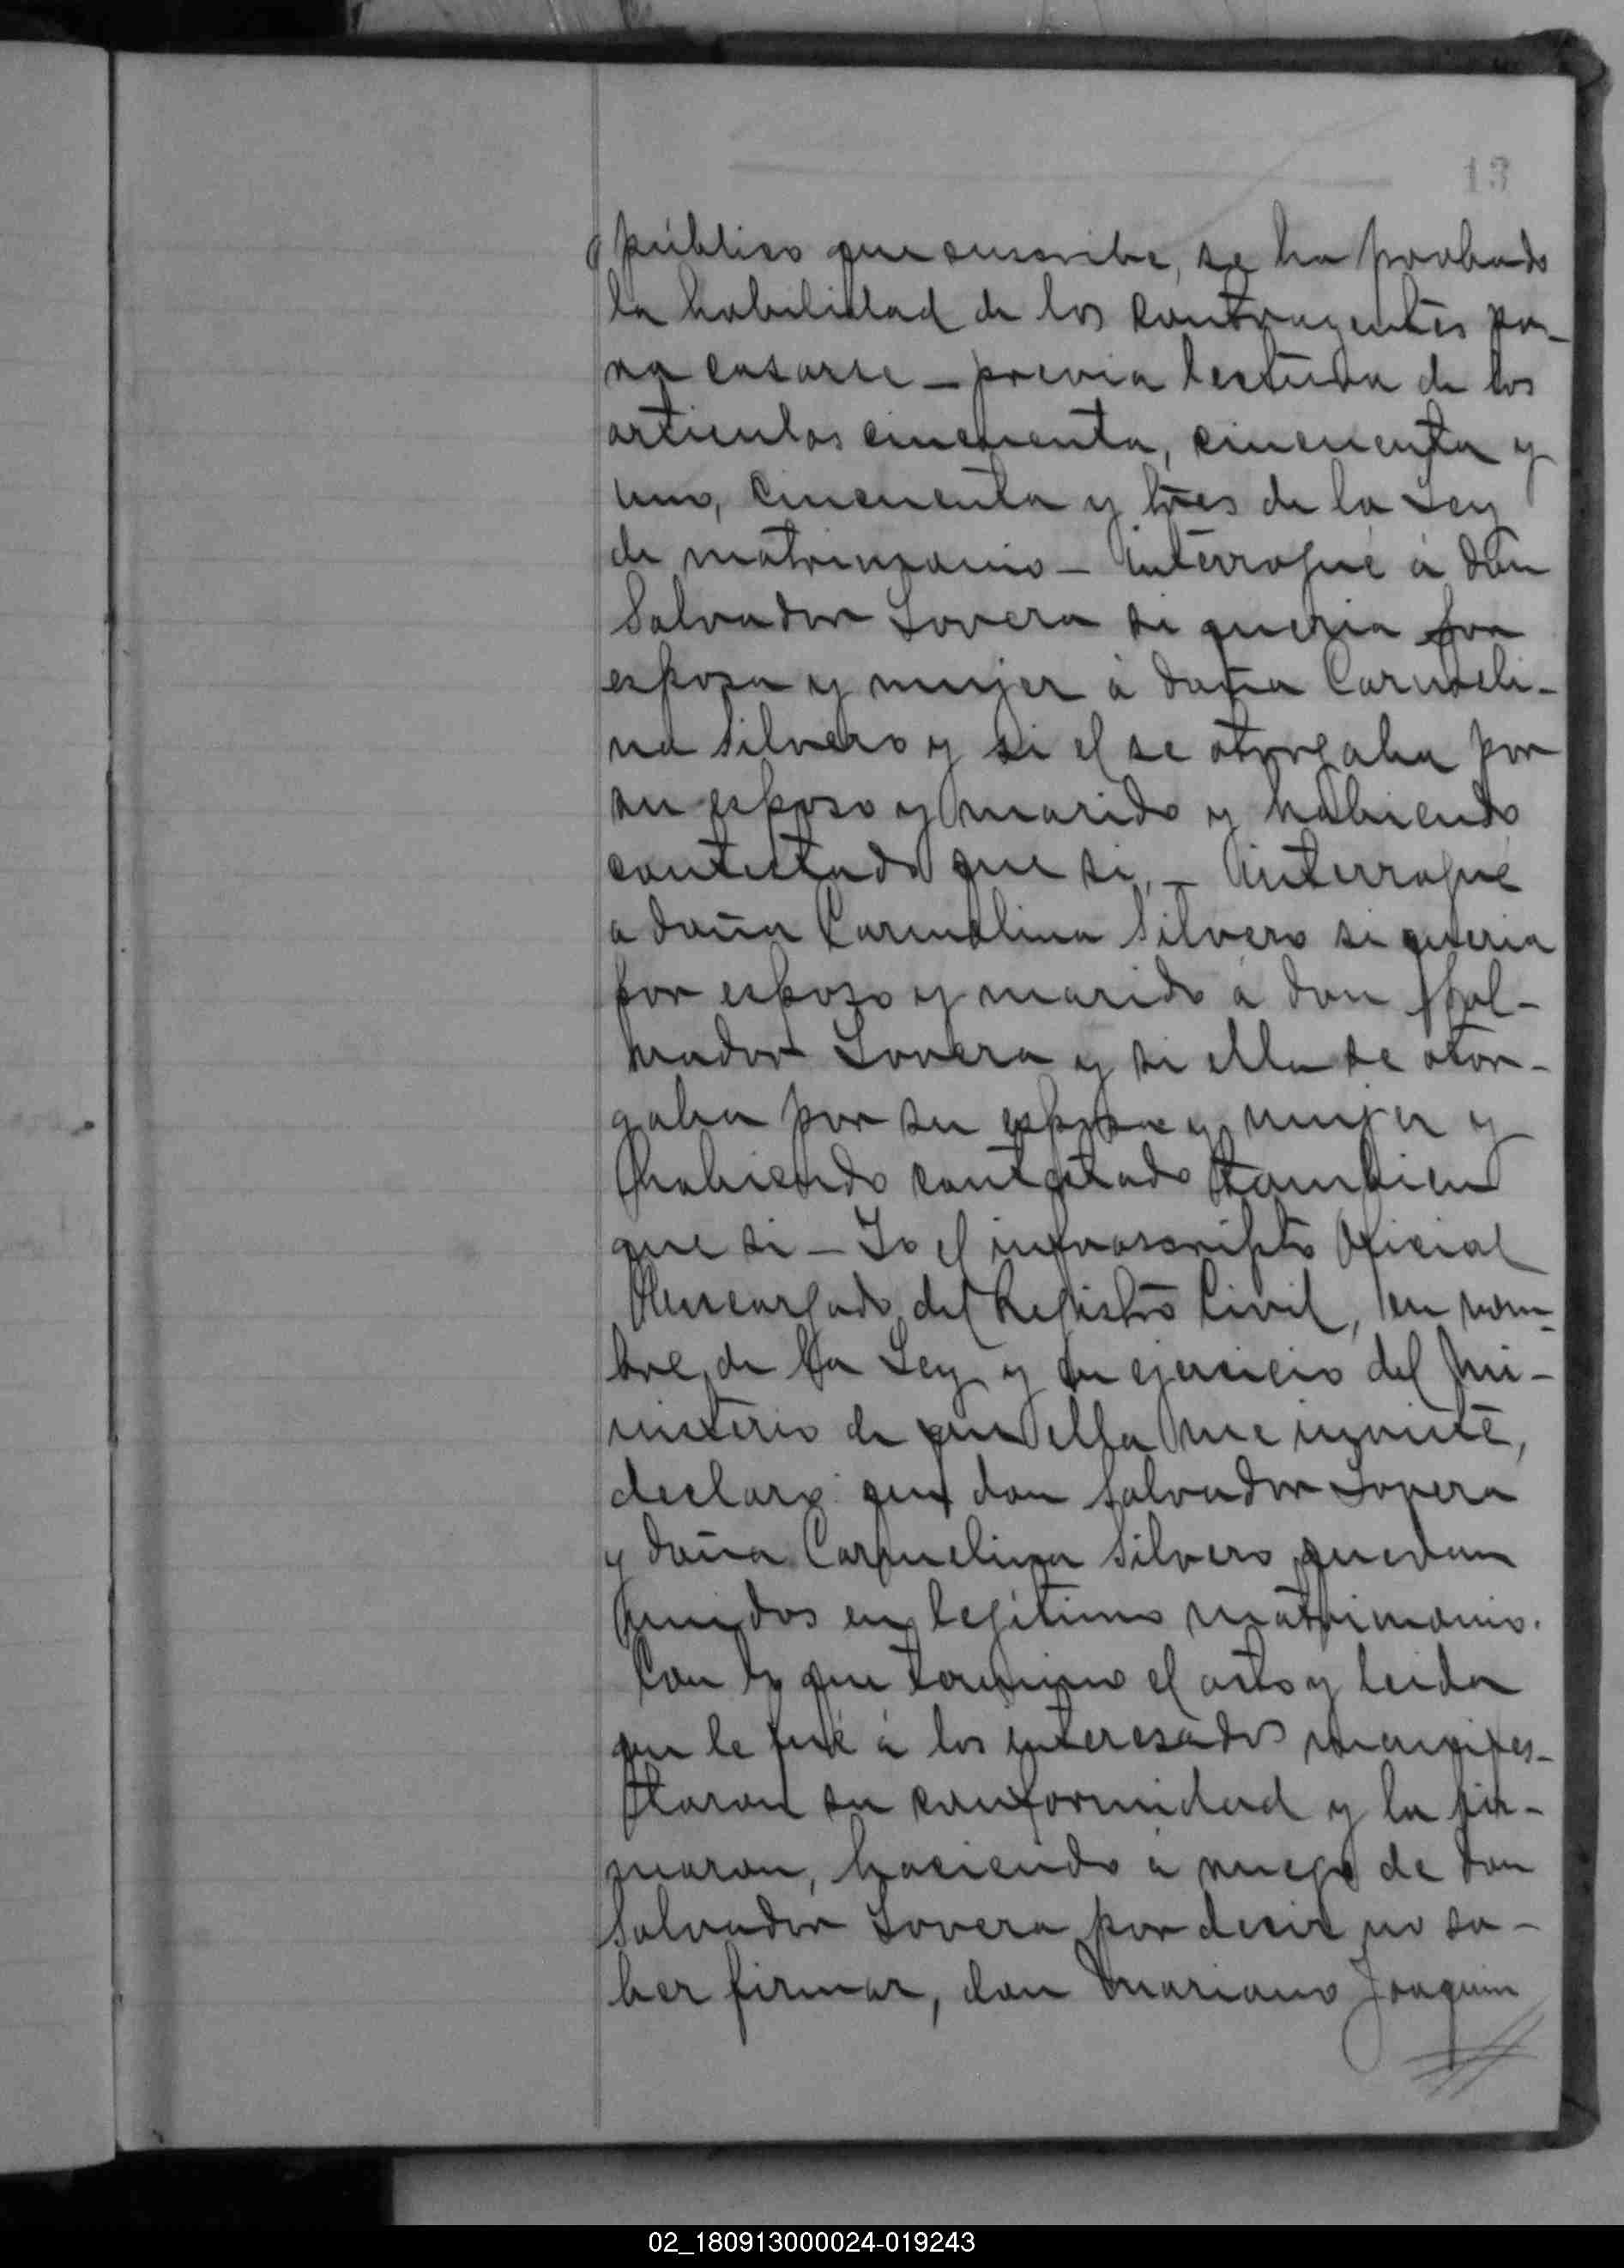 13
público que suscribe, se ha probado
la habilidad de los contrayentes pa-
ra casarse - previa lectura de los
articulos cincuenta, cincuenta y
uno, cincuenta y tres de la Ley
de matrimonio - interrogué á don
Salvador Lovera si queria por
esposa y mujer á doña Carmeli-
na Silvero y si el se otorgaba por
su esposo y marido y habiendo
contestado que si, - interrogué
a doña Carmelina Silvero si queria
por esposo y marido á don Sal-
vador Lovera y si ella se otor-
gaba por su esposa y mujer y
habiendo contestado tambien
que si - Yo el infrascripto Oficial
Encargado del Registro Civil, en nom-
bre de la Ley y en ejercicio del mi-
nisterio de que ella me inviste,
declaro: que don Salvador Lovera
y doña Carmelina Silvero quedan
unidos en legítimo matrimonio.
Con lo que termino el acto y leida
que le fué á los interesados manifes-
taron su conformidad y la fir-
maron, haciendo á ruego de don
Salvador Lovera por decir no sa-
ber firmar, don Mariano Joaquin
02_180913000024-019243